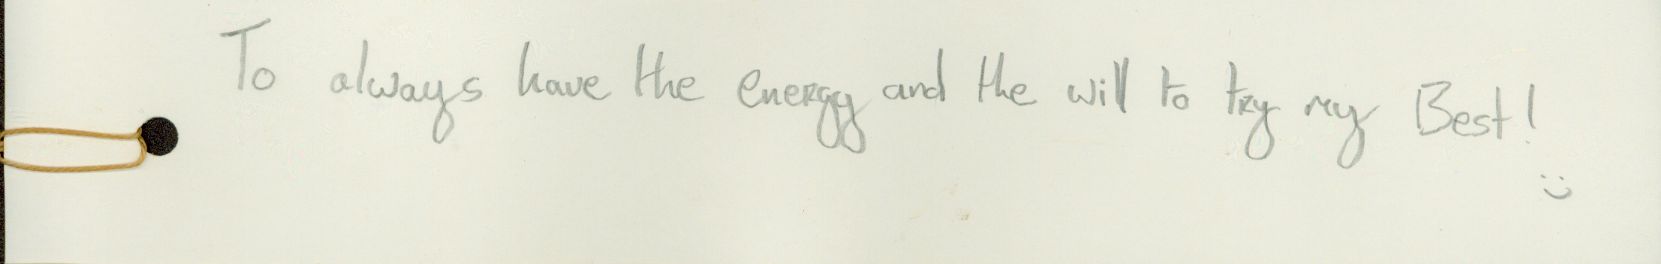 To always have the energy and the will to try my Best!
:)